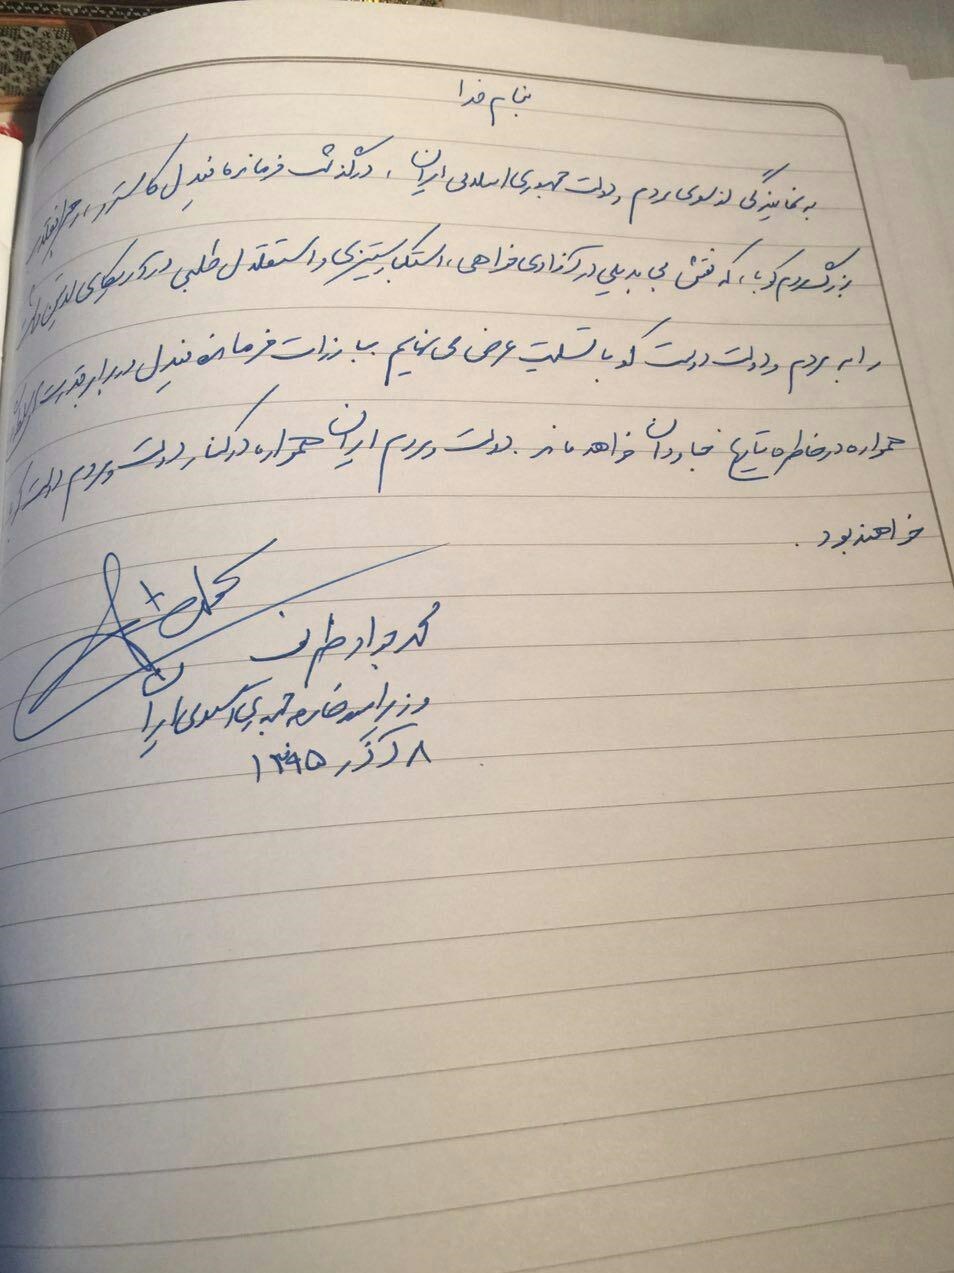 بنام خدا
به نمایندگی از سوی مردم و دولت جمهوری اسلامی ایران، درگذشت فرمانده فیدل کاسترو، رهبر انقلابی
بزرگ مردم کوبا، که نقشی بی بدیلی در آزادی خواهی، استکبار ستیزی و استقلال طلبی در آمریکای لاتین داشت
را به مردم و دولت دوست کوبا تسلیت عرض می نمایم. مبارزات فرمانده فیدل در برابر قدرت های
همواره در خاطره جاودان خواهد ماند. دولت و مردم ایران همواره در کنار دولت و مردم دوست کوبا
خواهند بود.
محمد جواد ظریف
وزیر امور خارجه جمهوری اسلامی ایران
۸ آذر ۱۳۹۵